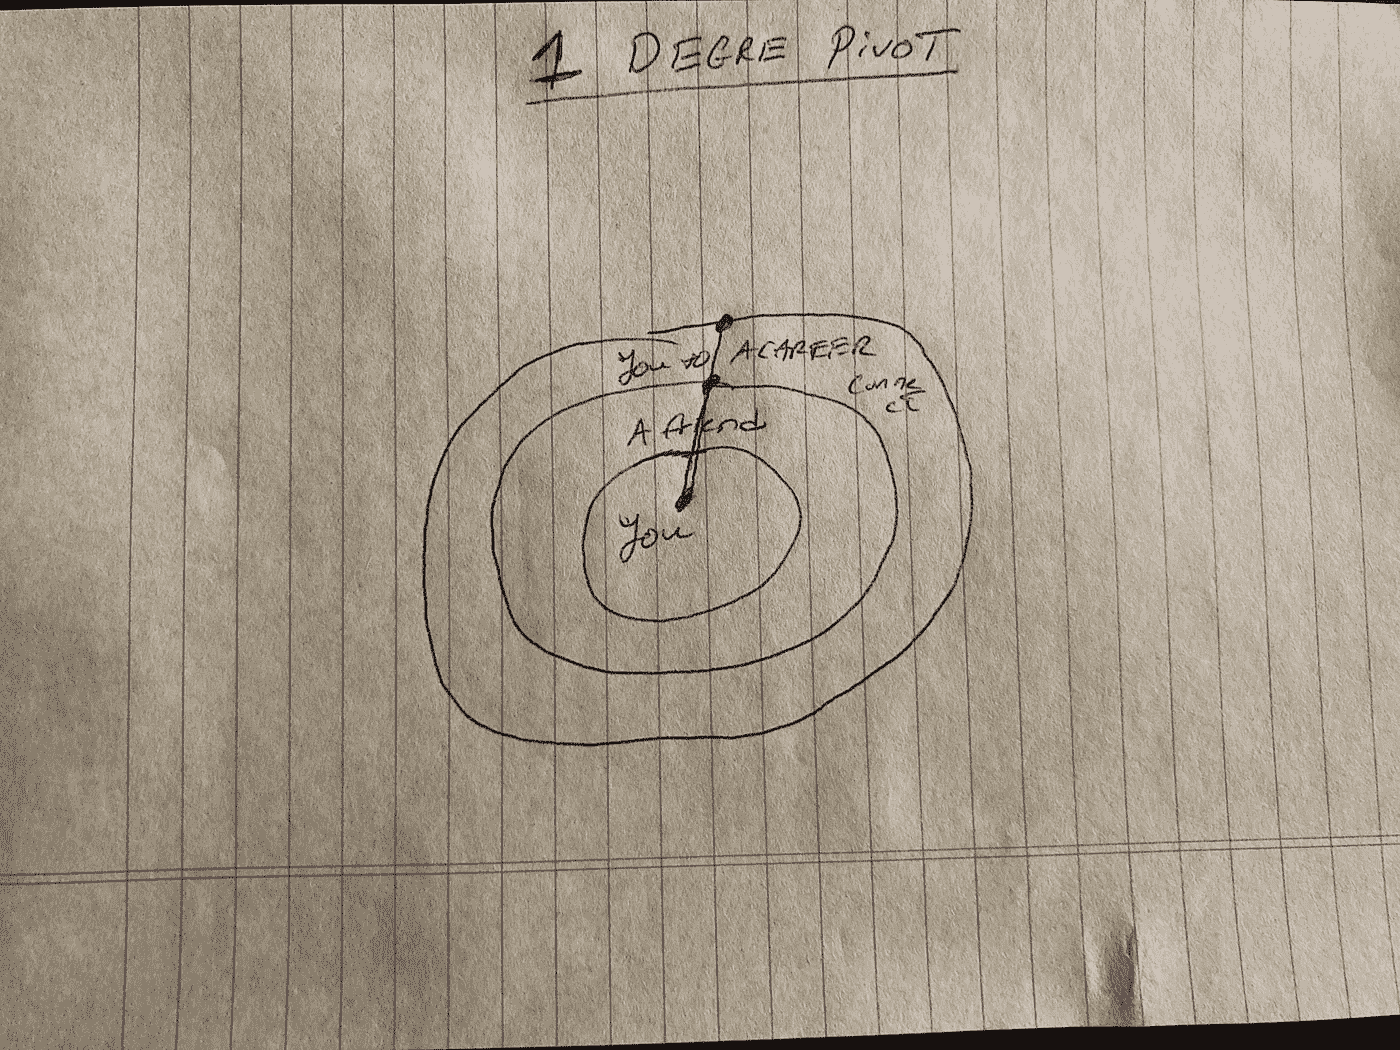 1 DEGRE PivoT
You to A CAREER
Conne
ct
A friend
You